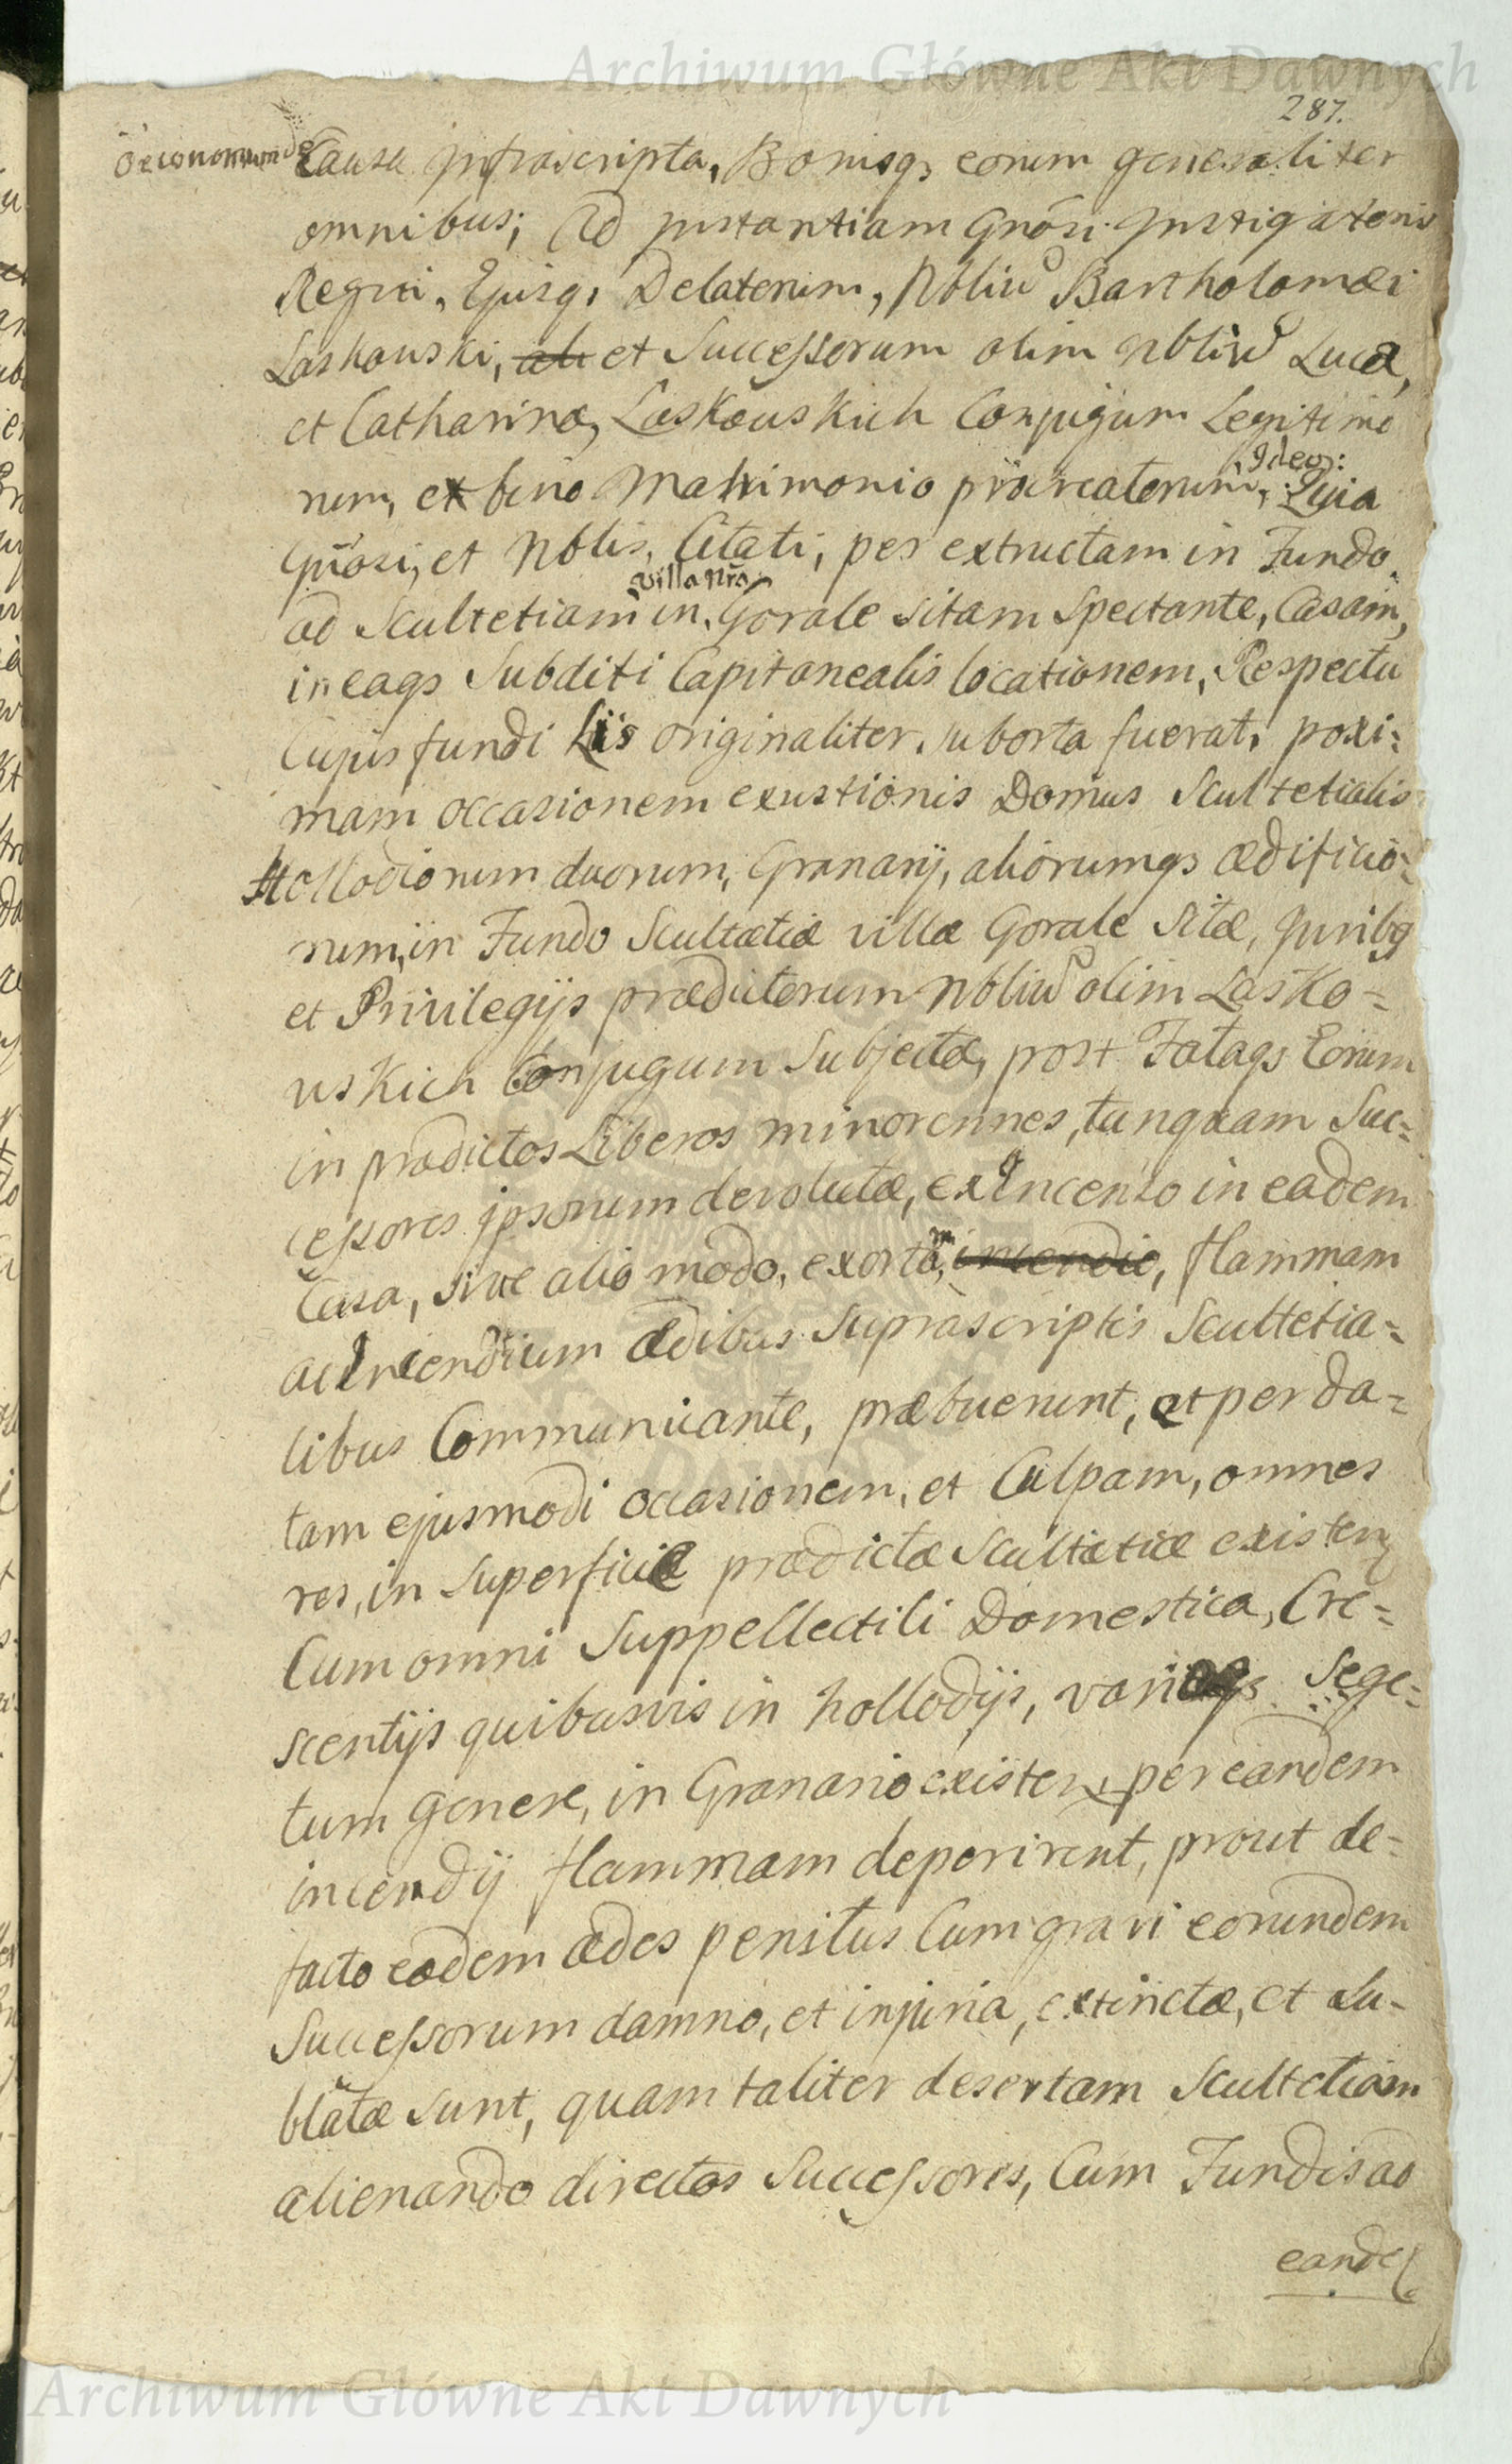 Archiwum Główne Akt Dawnych
287.
Oeconomum de
Causa infrascripta, Bonisqȝ eorum generaliter
omnibus; Ad Instantiam Gnōsi Instigatoris
Regni, Ejusqȝ Delatorum, Nbliū Bartholomæi
Laskouski, et Successorum olim Nbliū Lucæ,
et Catharinæ, Laskouskich Conjugum Legitimo
rum, ex bino Matrimonio procreatorum, Ideo: Quia
Gnōsi, et Nblis, Citati, per extructam in Fundo
villa Nrā
ad Scultetiam in Gorale sitam Spectante, Casam,
in eaqȝ Subditi Capitanealis locationem, Respectu
Cujus fundi Lis originaliter suborta fuerat, poxi:
mam occasionem exustionis Domus Scultetialis
Hollodiorum duorum, Granarij, aliorumqȝ ædificio-
rum, in Fundo Scultætiæ villæ Gorale sitæ, Juribȝ
et Privilegijs præductorum Nbliū olim Lasko-
uskich Conjugum Subjectæ, post Fataqȝ Eorum
in prædictos Liberos minorennes, tanquam Suc:
cessores ipsorum devolutæ, ex Incenso in eadem
Casa, sive alio modo, exortam, incendio, flammam
ac Incendium ædibus Suprascriptis Scultetia-
libus Communicante, præbuerunt, et per da-
tam ejusmodi occasionem, et Culpam, omnes
res, in Superficie prædictæ Scultætiæ existen
Cum omni Suppellectili Domestica, Cre-
scentijs quibusvis in hollodijs, varioqȝ Sege-
tum genere, in Granario existen, per eandem
incendij flammam deperirent, prout de-
facto eædem ædes penitus Cum gravi eorundem
Successorum damno, et injuria, extinctæ, et Su-
blatæ sunt, quam taliter desertam Scultetiam
alienando directos Successores, Cum Fundis ad
eande
Archiwum Główne Akt Dawnych